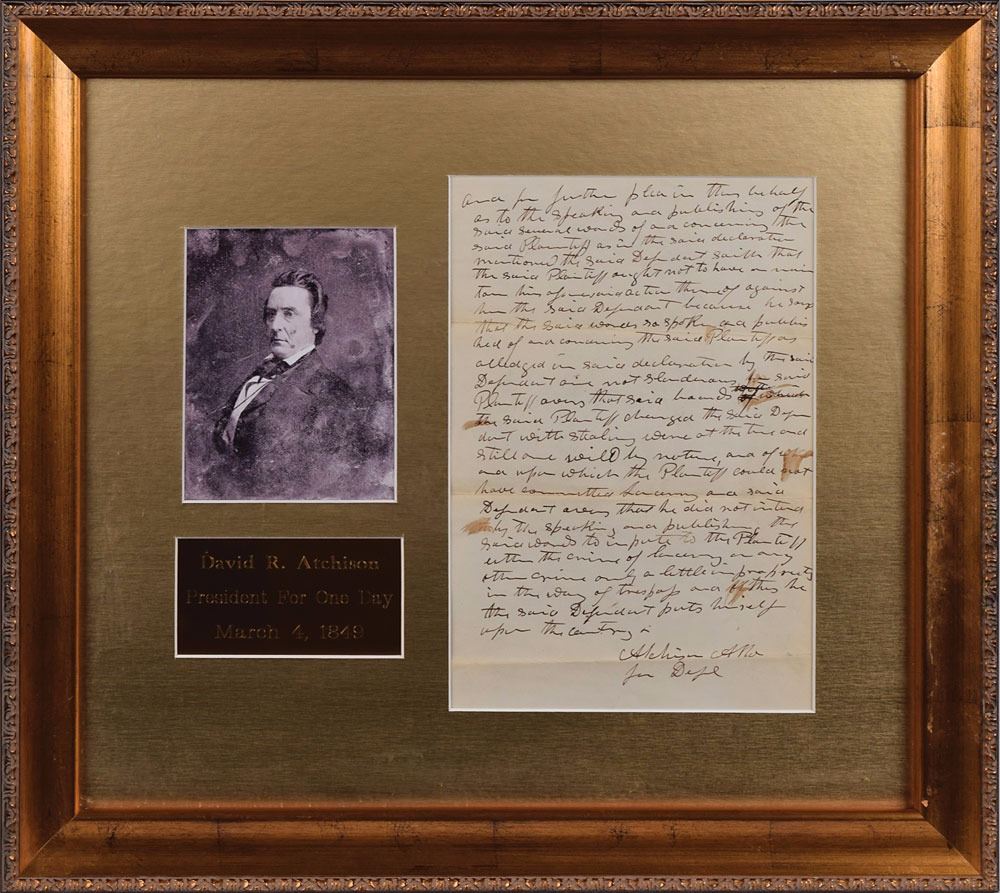 David R. Atchison
President For One Day
March 4, 1849
and for further plea in this behalf
as to the speaking and publishing of the
said several words of and concerning the
said Plaintiff as in the said declaration
mentioned the said Defendant saith that
the said Plaintiff ought not to have or main
tain his aforesaid action thereof against
him the said Defendant because he says
that the said words so spoken and publis
hed of and concerning the said Plaintiff as
alledged in said declaration by the said
Defendant are not slanderous said
Plaintiff avers that said
the said Plaintiff charged the said Defen
dant with stealing were at the time and
still are wild by nature, and of
and upon which the Plaintiff could not
have committed Larceny and said
Defendant avers that he did not intend
by the speaking and publishing the
said words to impute to the Plaintiff
either the crime of Larceny or any
other crime only a little impropriety
in the way of trespass and of this he
the said Defendant puts himself
upon the country
Atchison Atto
for Deft